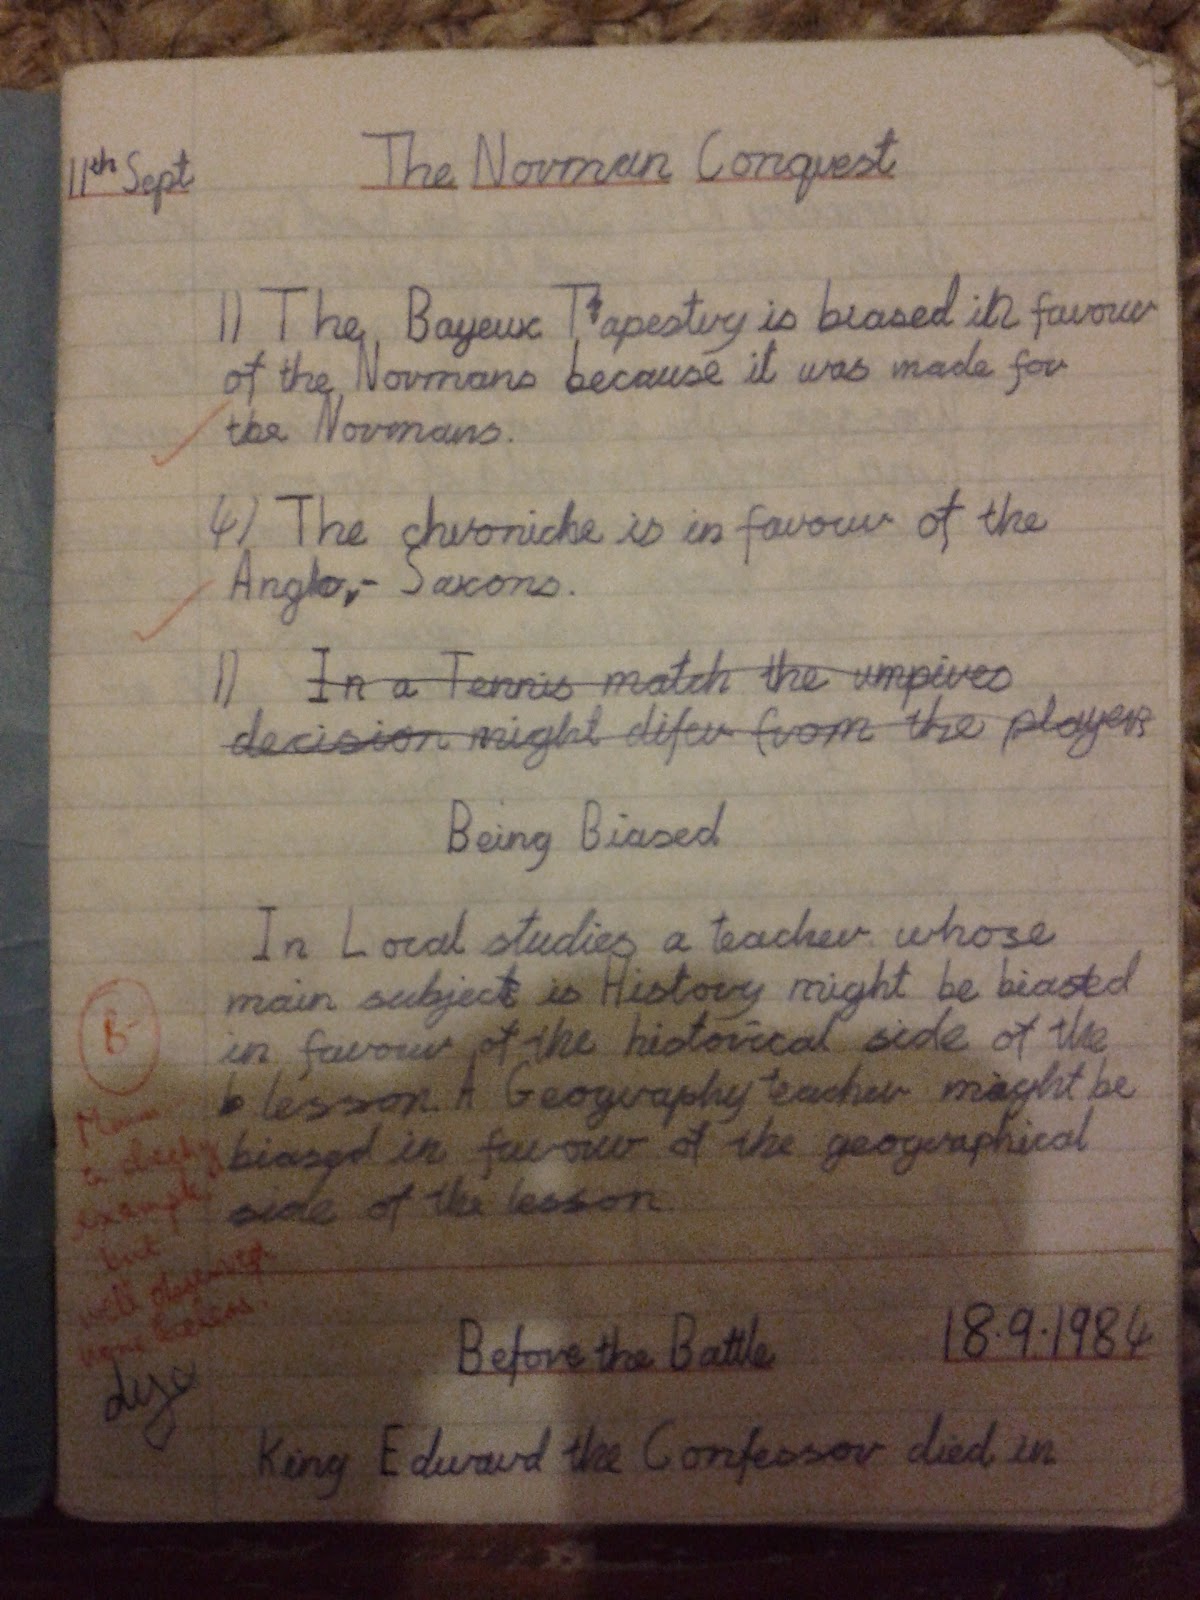 11th Sept
The Norman Conquest
1) The Bayeux Tapestry is biased in favour
of the Normans because it was made for
the Normans.
4) The chronicke is in favour of the
Anglo,- Saxons.
1) In a Tennis match the umpires
decision might difer from the players
Being Biased
In Local studies a teacher whose
main subject is History might be biased
in favour of the historical side of the
lesson. A Geography teacher might be
biased in favour of the geographical
side of the lesson.
B-
example,
but
well observed
nonetheless.
Before the Battle
18.9.1984
King Edward the Confessor died in